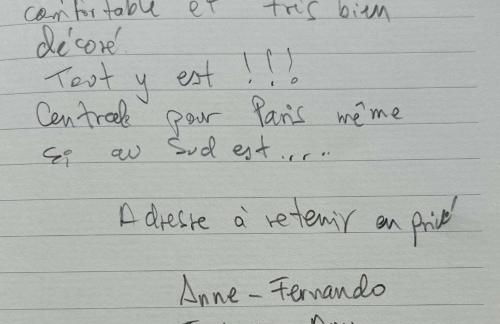 confortable et très bien
décoré
Tout y est !!!
Centrale pour Paris même
si au Sud est.....
Adresse à retenir en privé
Anne - Fernando